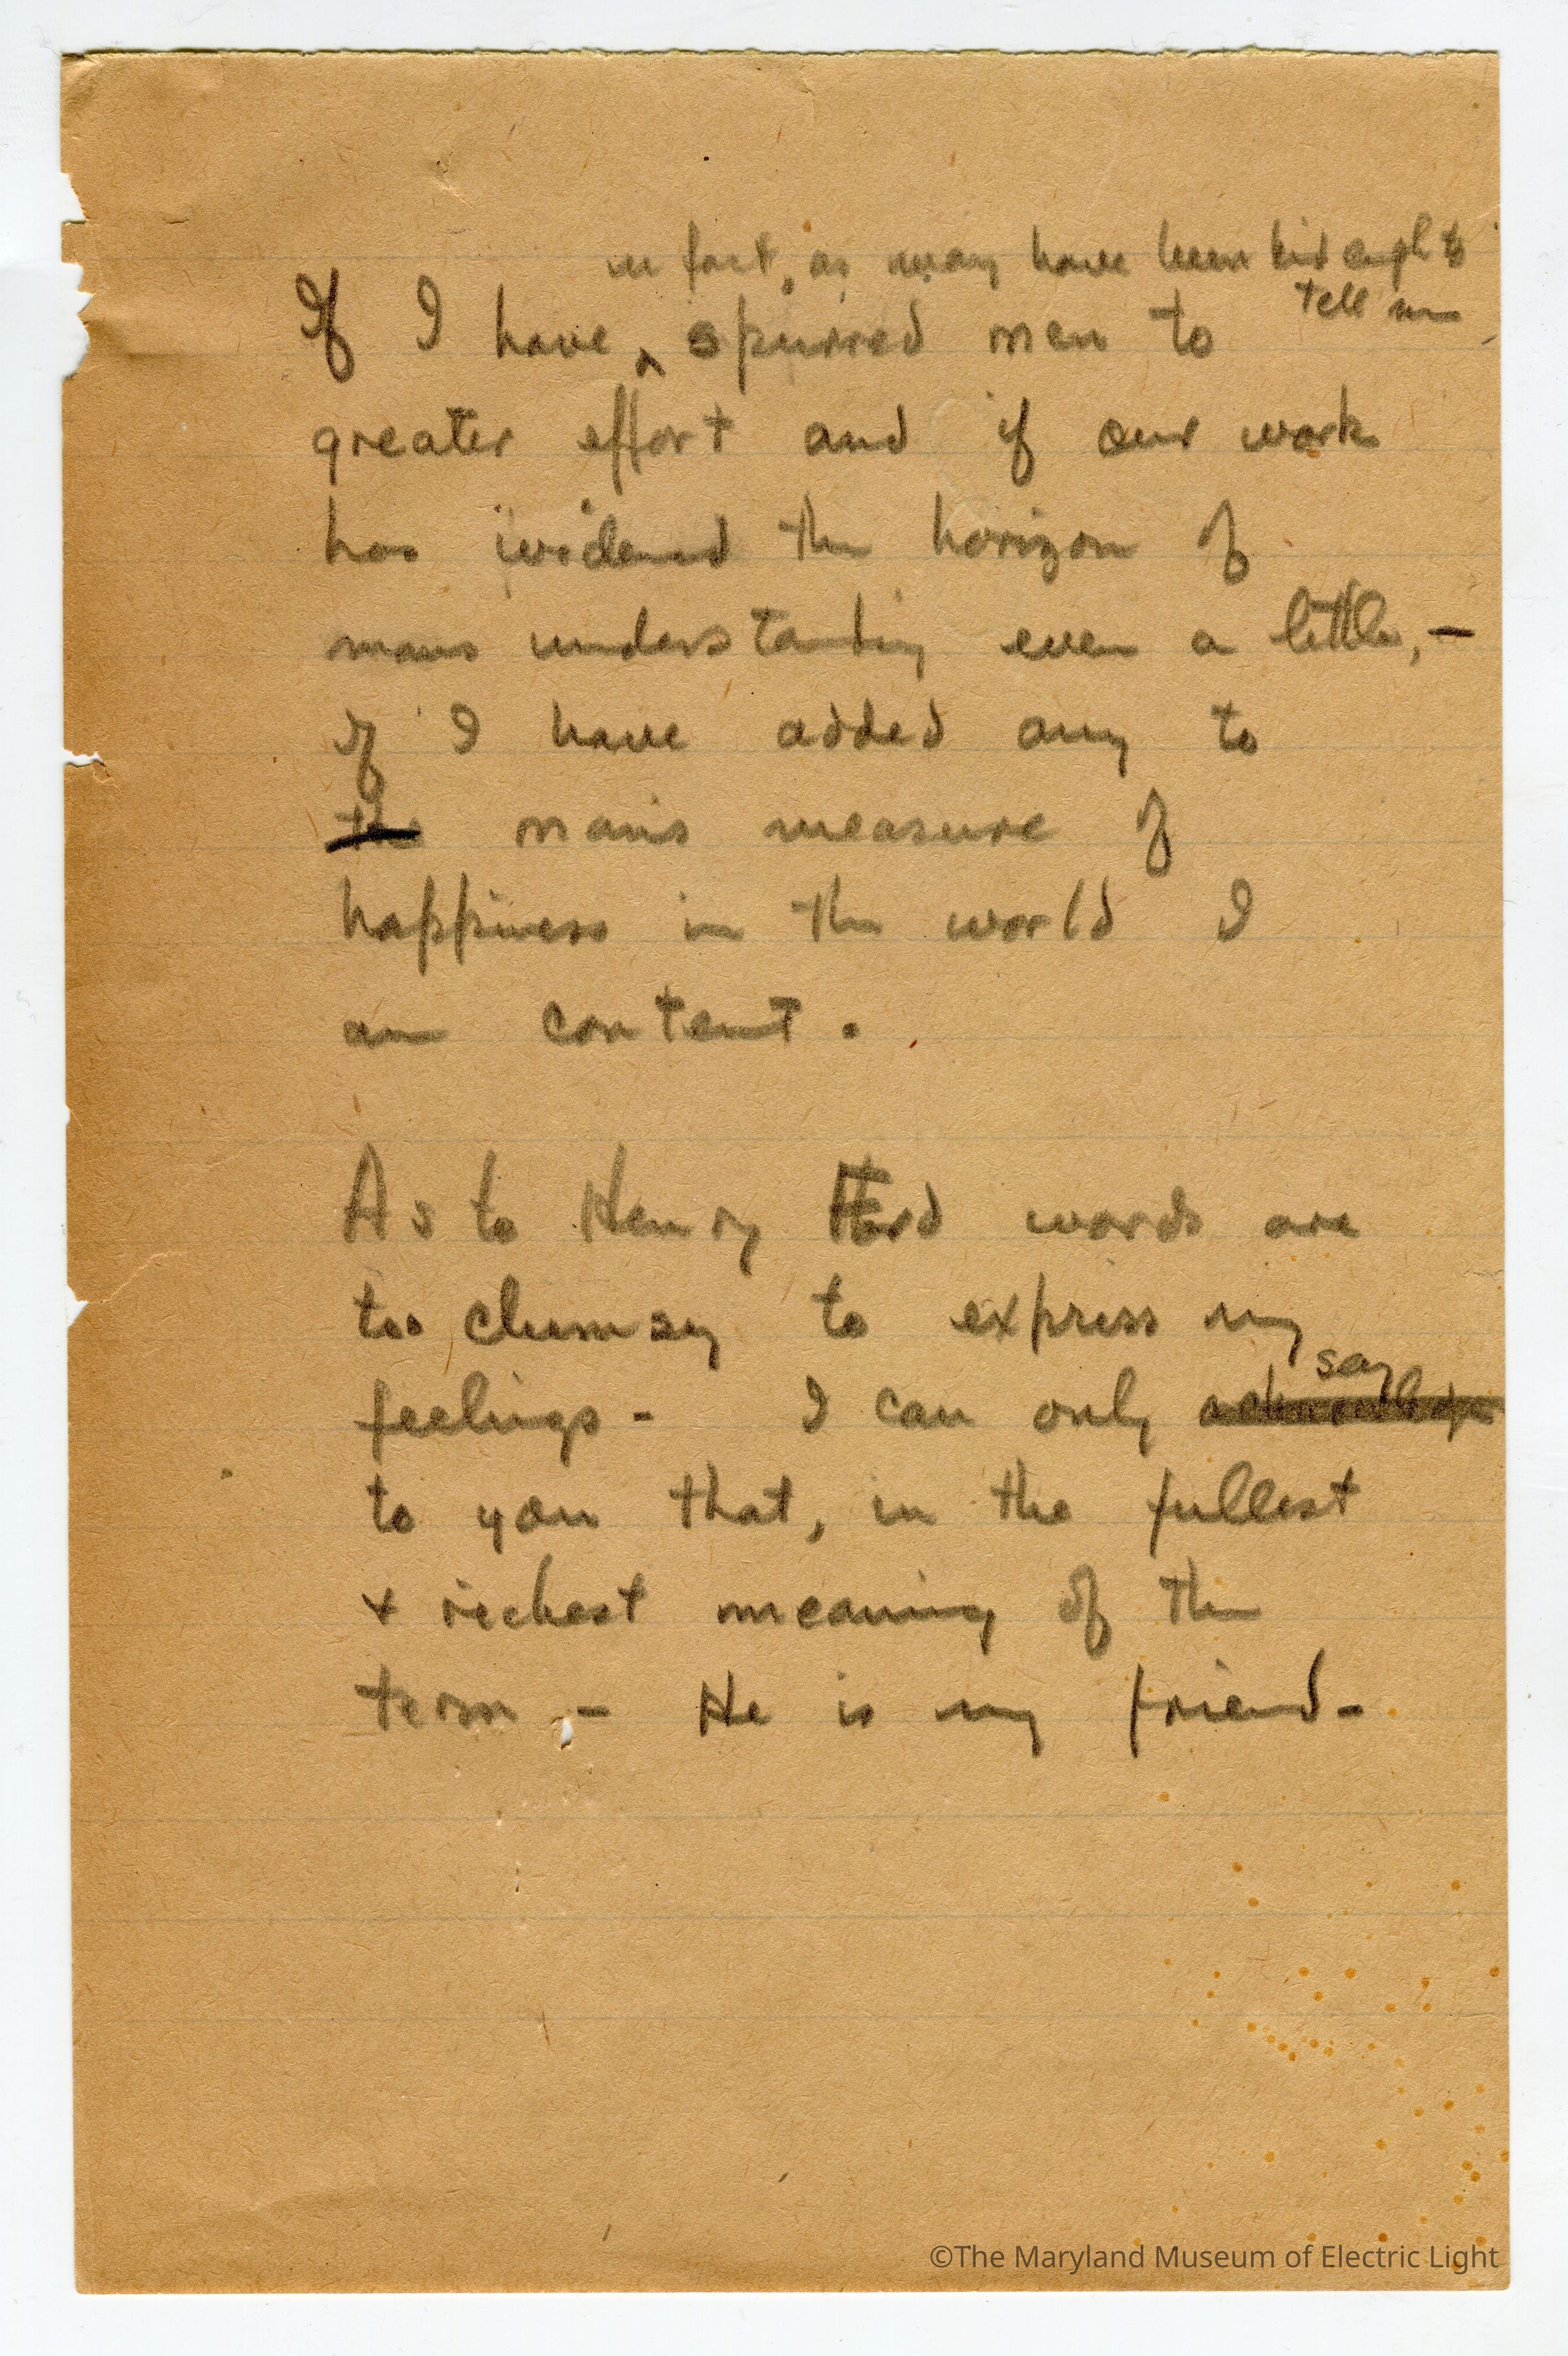 in fact, as many have been kind enough to
tell me
If I have ^ spurred men to
greater effort and if our work
has widened the horizon of
mans understanding even a little, –
if I have added any to
the man's measure of
happiness in the world I
am content.
As to Henry Ford words are
too clumsy to express my
say
feelings - I can only acknowledge
to you that, in the fullest
+ richest meaning of the
term – He is my friend -
©The Maryland Museum of Electric Light